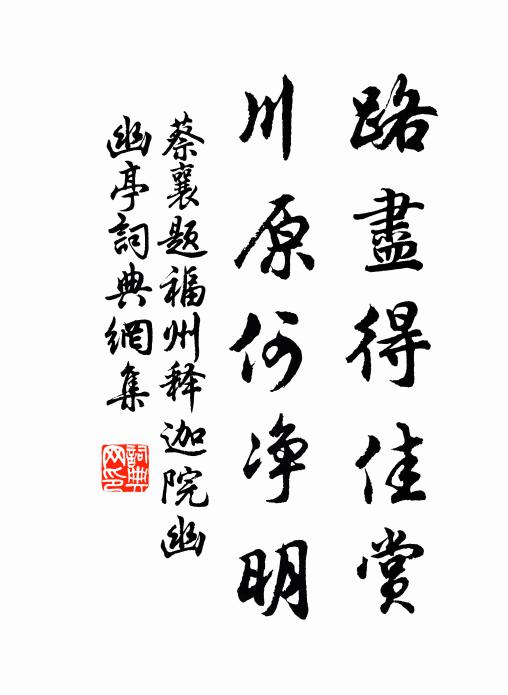 路盡得佳賞
川原何净明
蔡襄題福州释迦院幽
幽亭詞典網集
詞典
网印